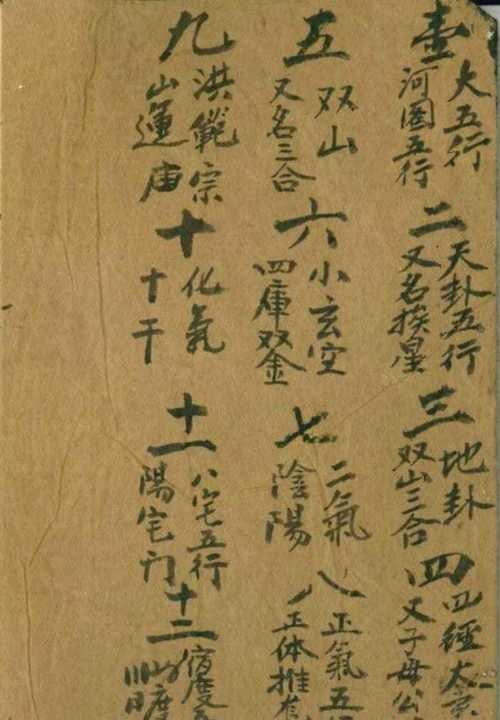 壹
大五行
河图五行
二
天卦五行
又名挨星
三
地卦
双山三合
四
四經大
又子母公
五
双山
又名三合
六
小玄空
四庫双金
七
二氣
陰陽
八
正氣五
正体推
九
洪範宗
山運庙
十
化氣
十干
十一
八宅五行
陽宅门
十二
宿度
度